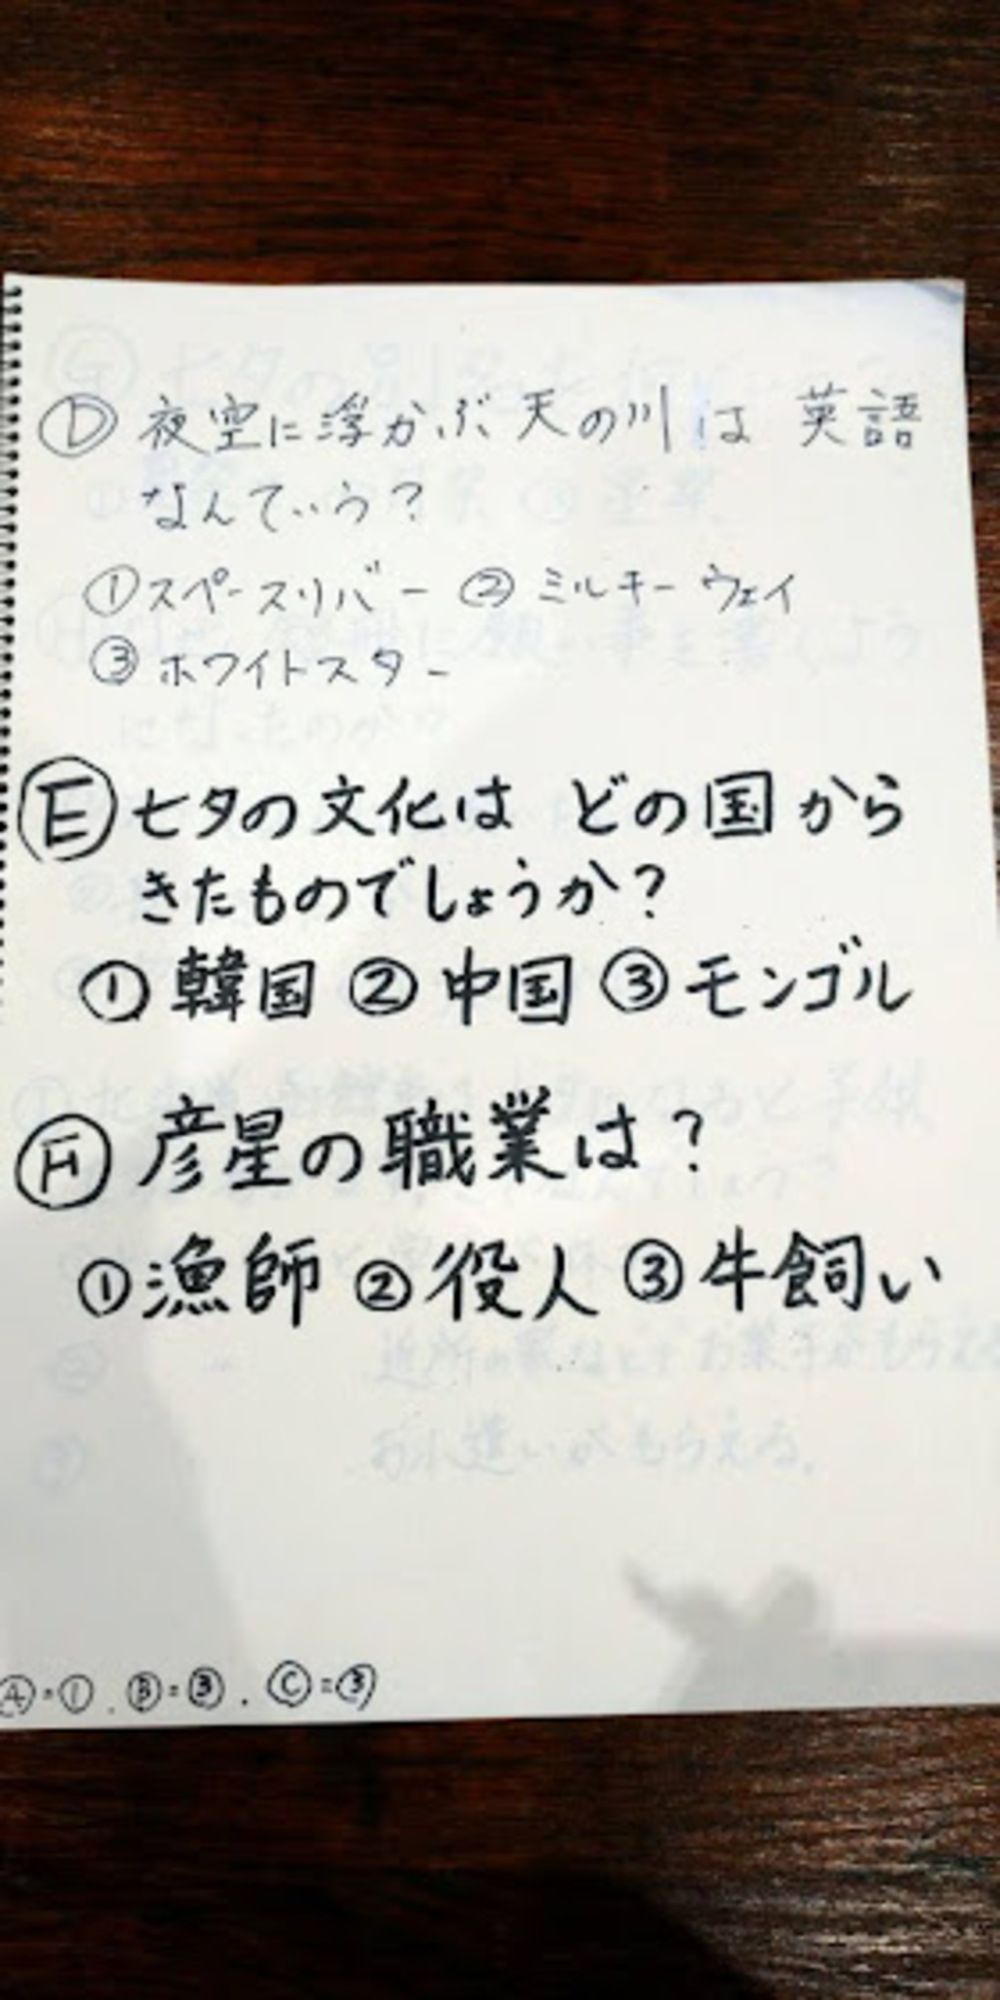 Ⓓ 夜空に浮かぶ天の川は 英語
なんていう？
①スペースリバー ② ミルキーウェイ
③ ホワイトスター
Ⓔ 七夕の文化は どの国から
きたものでしょうか？
① 韓国 ② 中国 ③ モンゴル
彦星の職業は？
①漁師 ② 役人 ③ 牛飼い
Ⓐ=①. Ⓑ=③. Ⓒ=③